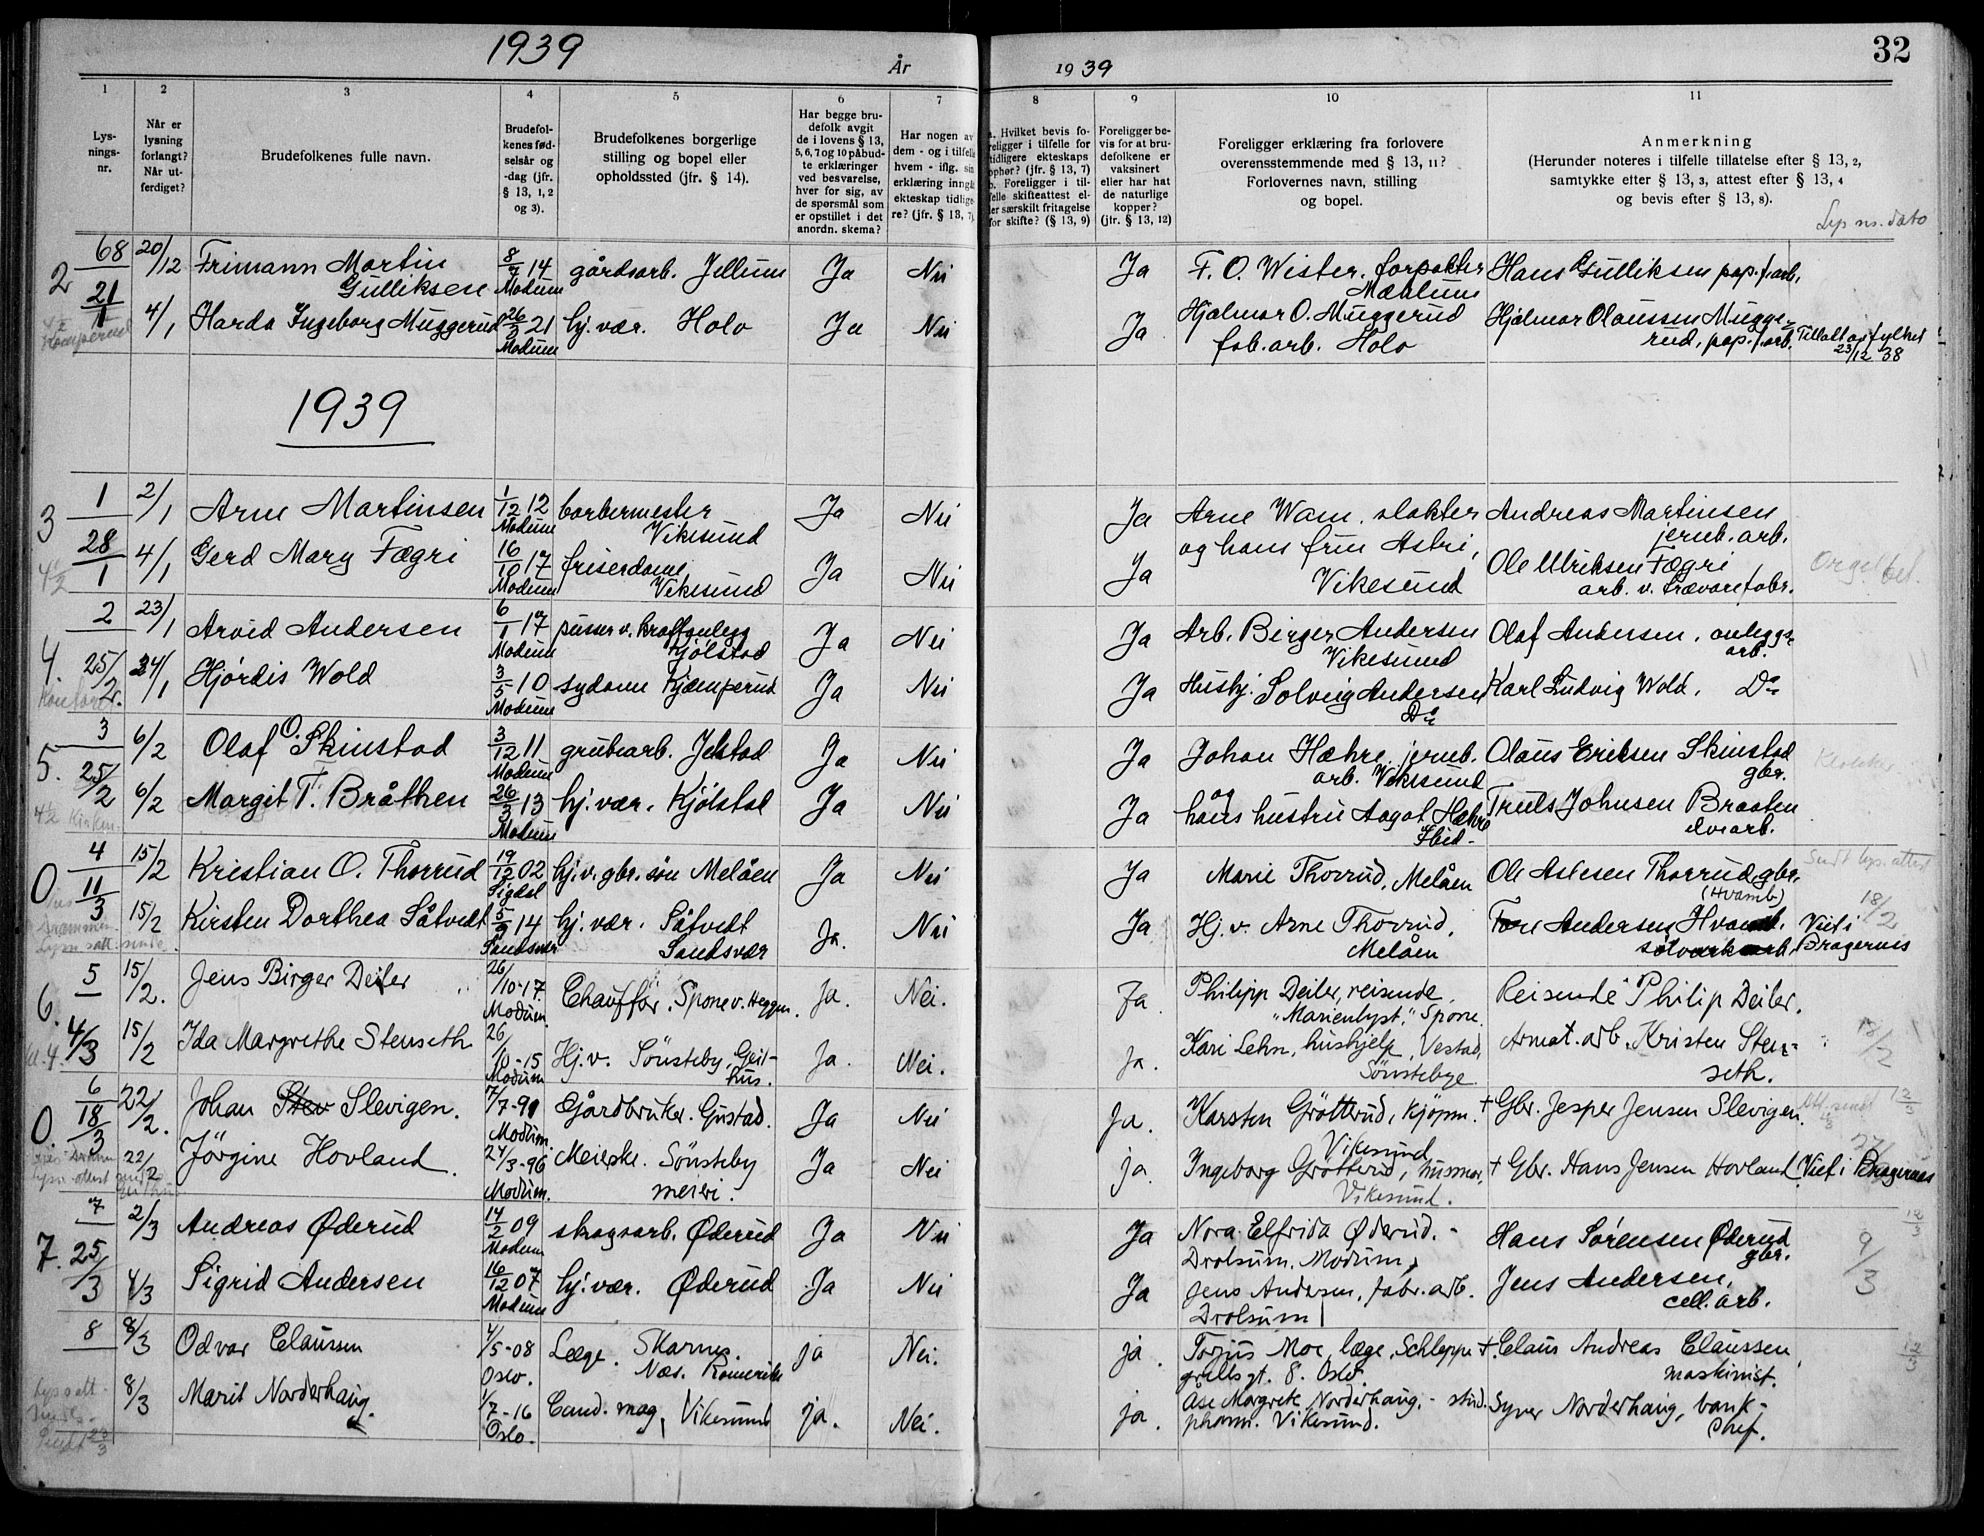 1939
År
1939
32
1
2
3
4
5
6
7
8
9
10
11
Lys-
nings-
nr.
Når er
lysning
forlangt?
Når ut-
ferdiget?
Brudefolkenes fulle navn.
Brudefol-
kenes fød-
selsår og
-dag (jfr.
§ 13, 1, 2
og 3).
Brudefolkenes borgerlige
stilling og bopel eller
opholdssted (jfr. § 14).
Har begge bru-
defolk avgit
de i lovens § 13,
5, 6, 7 og 10 påbud-
te erklæringer
ved besvarelse,
hver for sig, av
de spørsmål som
er opstillet i det
anordn. skema?
Har nogen av
dem - og i tilfelle
hvem - iflg. sin
erklæring inngåt
ekteskap tidlige-
re? (jfr. § 13, 7)
a. Hvilket bevis fo-
religger i tilfelle for
tidligere ekteskaps
ophør? (jfr. § 13, 7)
b. Foreligger i til-
felle skifteattest el-
ler særskilt fritagelse
for skifte? (§ 13, 9)
Foreligger be-
vis for at bru-
defolkene er
vaksinert
eller har hat
de naturlige
kopper?
(jfr. § 13, 12)
Foreligger erklæring fra forlovere
overensstemmende med § 13, 11?
Forlovernes navn, stilling
og bopel.
Anmerkning
(Herunder noteres i tilfelle tillatelse efter § 13, 2,
samtykke efter § 13, 3, attest efter § 13, 4
og bevis efter § 13, 8).
Lysn. dato
2 68 20/12 Frimann Martin 8/7 14 gårdsarb. Jellum Ja Nei Ja F. O. Wister. forpakter Hans Gulliksen pap.f.arb.
Gulliksen Modum Mæhlum
21/1 4/1 Harda Ingeborg Muggerud 26/3 21 hj. vær. Holo Ja Nei Ja Hjalmar O. Muggerud Hjalmar Olaussen Mugge-
Kjemperud Modum fab. arb. Holo rud, pap.f.arb. Tillatt av fylket
23/12 38
1939
3 1 2/1 Arne Martinsen 1/12 12 barbermester Ja Nei Ja Arne Wam. slakter Andreas Martinsen
Modum Vikesund og hans frue Astri, jernb. arb.
28/1 4/1 Gerd Mary Fægri 16/10 17 friserdame Ja Nei Ja Ole Ulriksen Fægri Orgel bet.
Modum Vikesund Vikesund arb. v. trævarefabr.
4. 2 23/1 Arvid Andersen 6/1 17 pusser v. kraftanlegg Ja Nei Ja Arb. Birger Andersen Olaf Andersen. anleggs-
Modum Kjølstad Vikesund arb.
25/2 24/1 Hjørdis Wold 3/5 10 sydame Kjæmperud Ja Nei Ja Hushj. Solveig Andersen Karl Ludvig Wold. Do
Modum Do
5. 3 6/2 Olaf O. Skinstad 3/12 11 grubearb. Jelstad Ja Nei Ja Johan Hæhre jernb. Olaus Eriksen Skinstad
Modum arb. Vikesund gbr.
25/2 6/2 Margit T. Bråthen 26/3 13 hj. vær. Kjølstad Ja Nei Ja og hans hustru Aagot Hæhre Truls Johnsen Braaten
Modum Ibid. elvearb.
0 4 15/2 Kristian O. Thorrud 19/12 02 hj. v. gbr. søn Melåen Ja Nei Ja Marie Thorrud, Melåen Ole Aslesen Thorrud gbr. Sendt lys. attest
Sigdal (Hvamb)
11/3 15/2 Kirsten Dorthea Såtvedt 5/3 14 hj. vær. Såtvedt Ja. Nei Ja Hj. v. Arne Thorrud, Tore Andersen Hvamb. Viet i 18/2
Sandsvær Sandsvær Melåen sølvverksarb. Bragernes
6. 5 15/2. Jens Birger Deiler 26/10-17 Chauffør. Spone v. Heggen. Ja. Nei. Ja. Philipp Deiler, reisende. Reisende Philip Deiler.
Modum. "Marienlyst," Spone.
4/3 15/2 Ida Margrethe Stenseth 26/10-15 Hj. v. Sønsteby, Geit- Ja. Nei. ja. Kari Lehn, hushjelp, Vestad, Armat. arb. Kristen Sten- 18/2
Modum hus. Sønstebye seth.
0. 6 22/2. Johan Slevigen. 7/7-91 Gårdbruker. Gustad. Ja Nei Ja. Karsten Grøtterud, kjøpm. † Gbr. Jesper Jensen Slevigen.
Modum. Vikesund
18/3 22/2 Jørgine Hovland. 24/3-96 Meierske. Sønsteby Ja Nei ja. Ingeborg Grøtterud, husmor, † Gbr. Hans Jensen Hovland Viet i Bragernes
Modum. meieri. Vikesund.
7. 7 2/3 Andreas Øderud 14/2 09 skogsarb. Øderud Ja Nei Ja Nora Elfrida Øderud. - Hans Sørensen Øderud
Modum Drolsum. Modum. gbr.
25/3 4/3 Sigrid Andersen 16/12 07 hj. vær. Øderud Ja Nei Ja Jens Andersen, fabr. arb. Jens Andersen, 9/3
Modum Drolsum cell. arb.
8 8/3 Odvar Claussen 4/5-08 Læge. Skarnes. ja Nei. ja. Torjus Moe, læge, Schleppe- †. Claus Andreas Claussen, 12/3
Oslo. Næs. Romerike grells gt. 8. Oslo. maskinist.
8/3 Marit Norderhaug. 1/7-16 Cand. mag, Vikesund ja. Nei. ja. Åse Margrete Norderhaug, - stud. Syver Norderhaug, bank-
Oslo. pharm. Vikesund. chef.